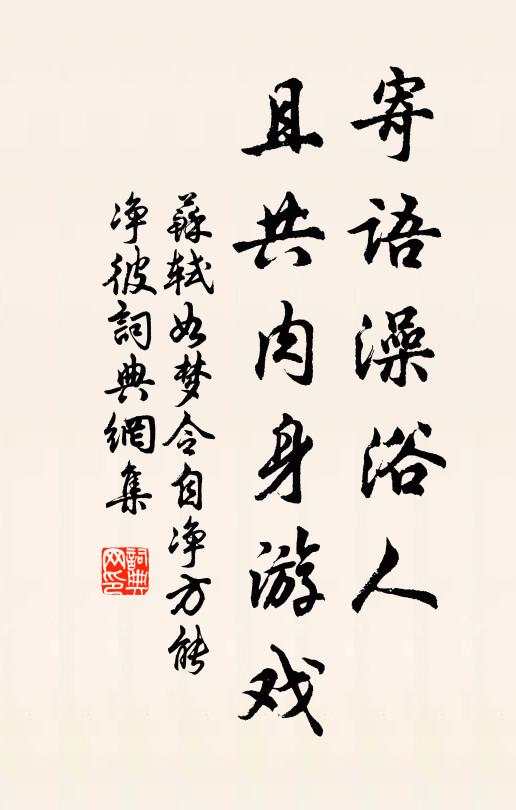 寄語澡浴人
且共肉身游戏
蘇軾如梦令自净方能
净彼詞典網集
詞典网印